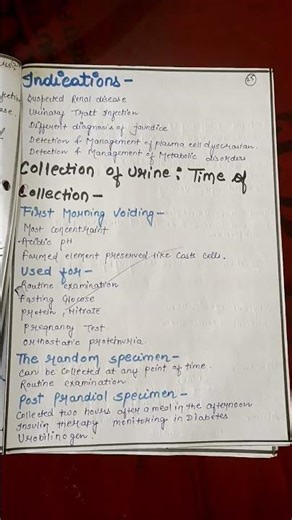 23
Indications-
Suspected Renal disease
Urinary Tract Injection
Different diagnosis of Jaindice
Detection & Management of plasma cell dyscrasian.
Detection & Management of Metabolic disorders
Collection of Urine: Time of
Collection-
First Morning Voiding-
Most concentraint
Acidic pH
Formed element preserved like Casts cells.
Used for-
Routine examination
Fasting Glucose
protein, Nitrate
Pregnancy Test
Orthostatic proteinuria
The random specimen-
Can be collected at any point of time.
Routine examination
Post Prandial specimen-
Collected two hours after a meal in the afternoon
Insulin therapy monitoring in Diabetes
Urobilinogen.